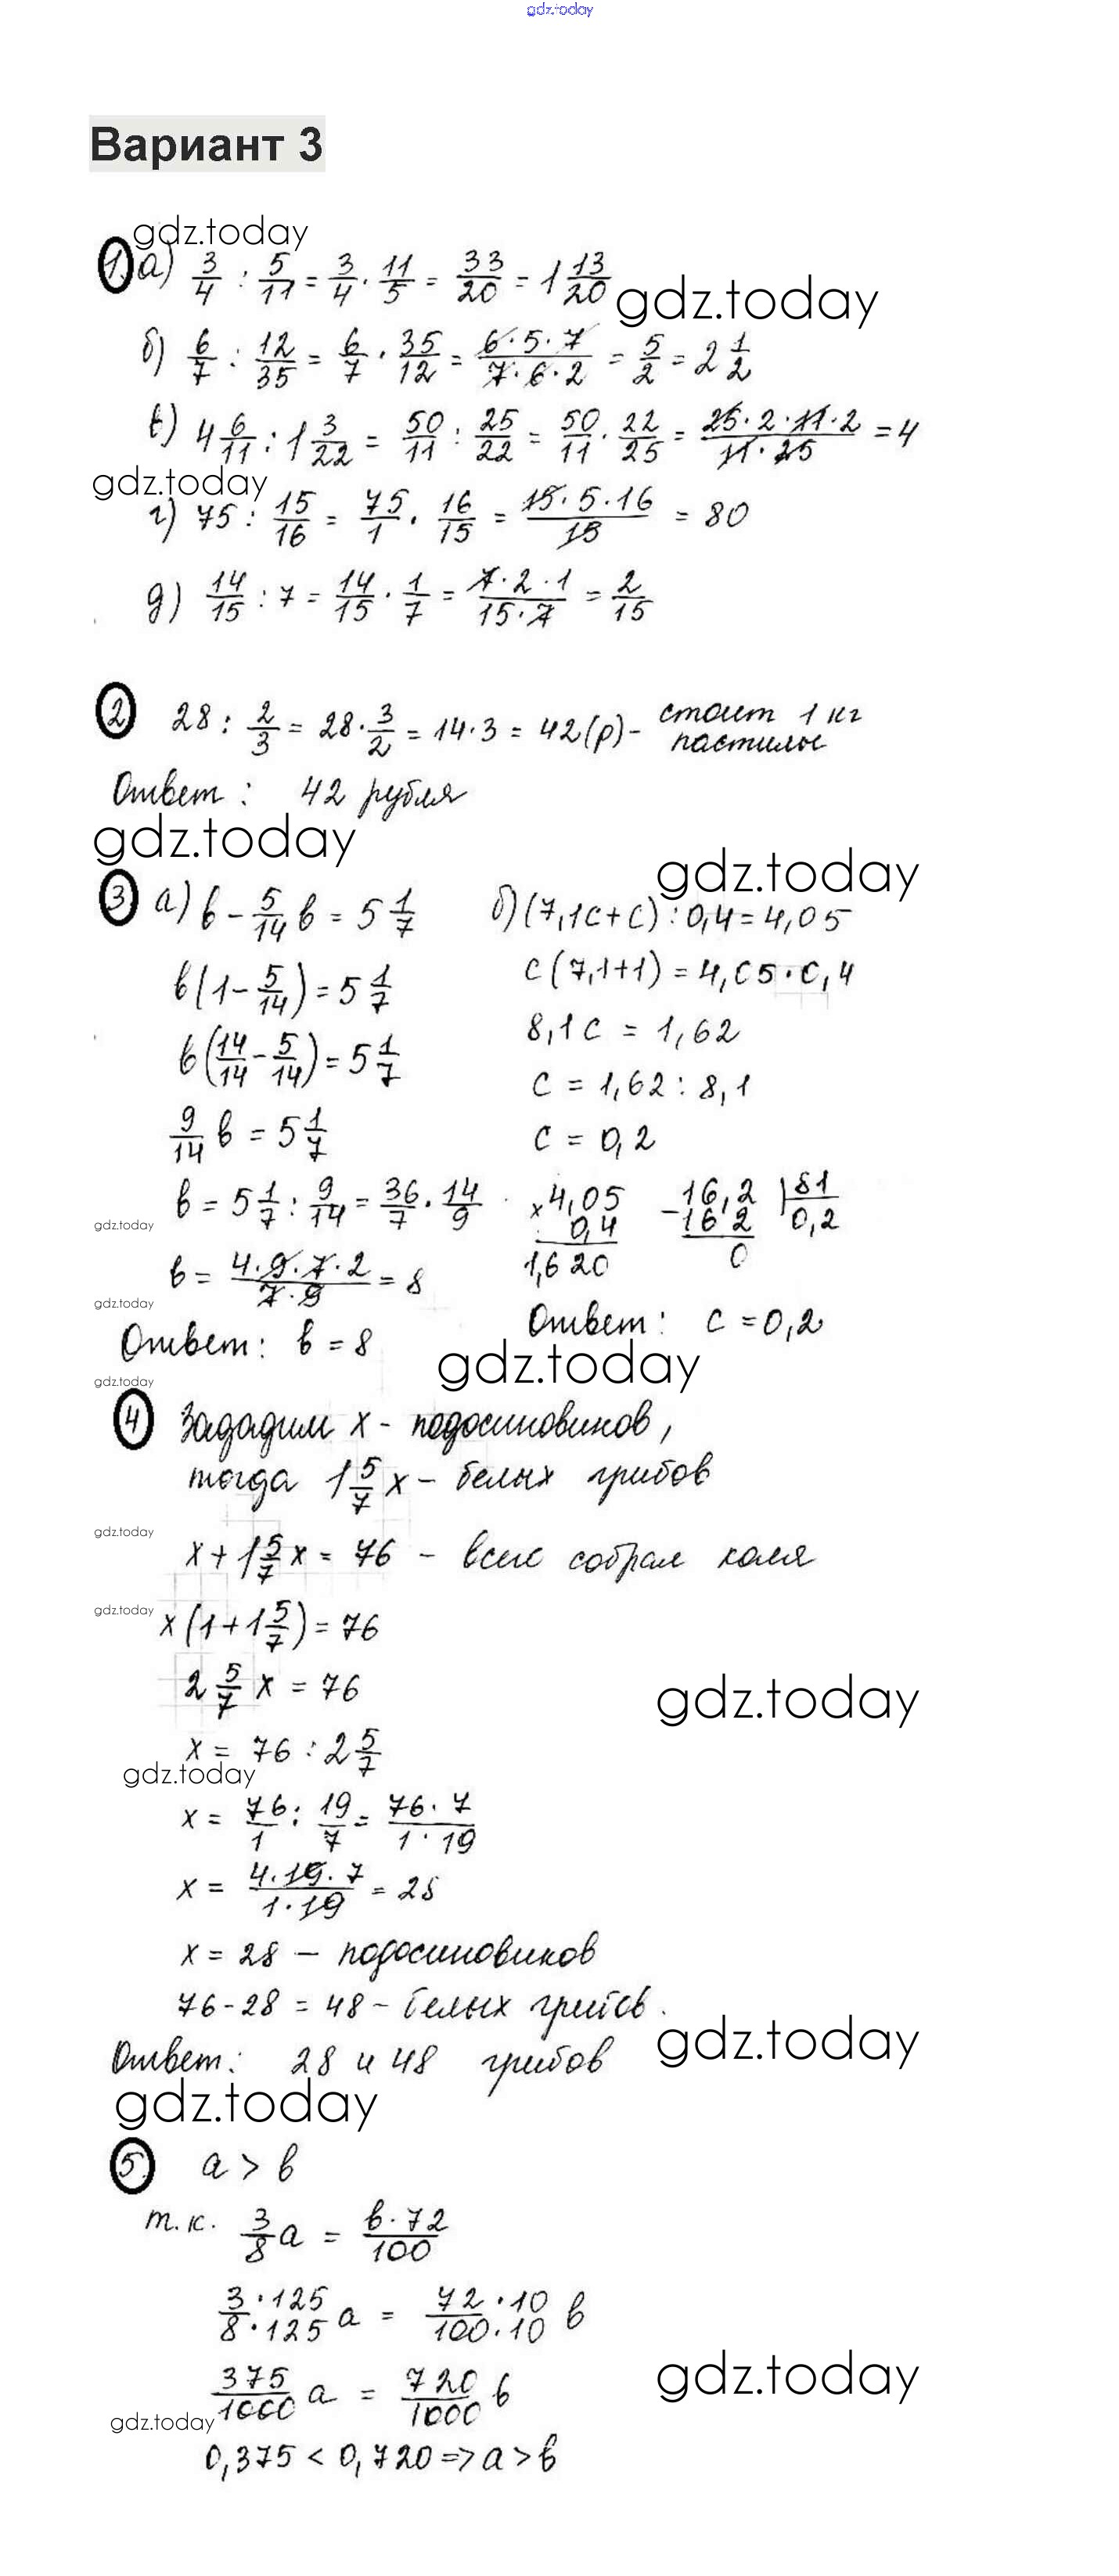 gdz.today
Вариант 3
gdz.today
1. а) 3/4 : 5/11 = 3/4 · 11/5 = 33/20 = 1 13/20
gdz.today
б) 6/7 : 12/35 = 6/7 · 35/12 = 6·5·7/7·6·2 = 5/2 = 2 1/2
в) 4 6/11 : 1 3/22 = 50/11 : 25/22 = 50/11 · 22/25 = 25·2·11·2/11·25 = 4
gdz.today
г) 75 : 15/16 = 75/1 · 16/15 = 15·5·16/15 = 80
д) 14/15 : 7 = 14/15 · 1/7 = 7·2·1/15·7 = 2/15
2 28 : 2/3 = 28 · 3/2 = 14·3 = 42(р) - стоит 1 кг пастилы
Ответ: 42 рубля
gdz.today
gdz.today
3 а) b - 5/14 b = 5 1/7
b(1 - 5/14) = 5 1/7
b(14/14 - 5/14) = 5 1/7
9/14 b = 5 1/7
b = 5 1/7 : 9/14 = 36/7 · 14/9
gdz.today
b = 4·9·7·2/7·9 = 8
gdz.today
Ответ: b = 8
б) (7,1c + c) : 0,4 = 4,05
c(7,1+1) = 4,05 · 0,4
8,1c = 1,62
c = 1,62 : 8,1
c = 0,2
×4,05
0,4
1,620
-16,2 | 81
16 2 0,2
0
Ответ: c = 0,2
gdz.today
gdz.today
4 Зададим x - подосиновиков,
тогда 1 5/7 x - белых грибов
gdz.today
x + 1 5/7 x = 76 - всего собрал коля
gdz.today
x(1 + 1 5/7) = 76
2 5/7 x = 76
gdz.today
x = 76 : 2 5/7
gdz.today
x = 76/1 : 19/7 = 76·7/1·19
x = 4·19·7/1·19 = 28
x = 28 - подосиновиков
76 - 28 = 48 - белых грибов.
gdz.today
Ответ: 28 и 48 грибов
gdz.today
5. a > b
т.к. 3/8 a = b·72/100
3·125/8·125 a = 72·10/100·10 b
375/1000 a = 720/1000 b
gdz.today
gdz.today
0,375 < 0,720 => a > b